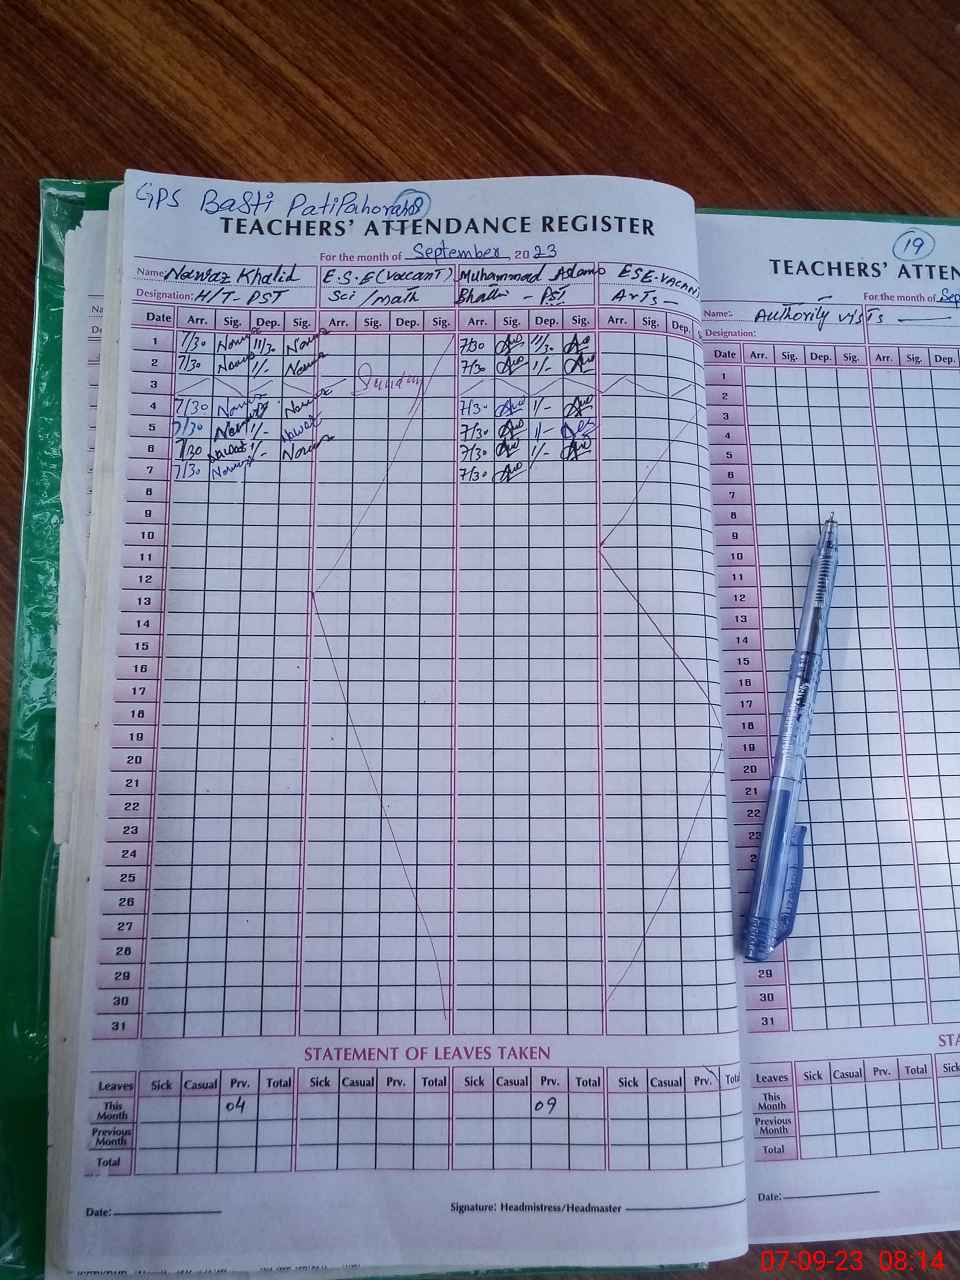 GPS Basti Pati Pahoran
TEACHERS' ATTENDANCE REGISTER
For the month of September 2023
Name: Nawaz Khalid E.S.E (Vacant) Muhammad Aslam ESE-VACANT
Designation: H/T- PST Sci / math Bhatti - PST Arts -
Date Arr. Sig. Dep. Sig. Arr. Sig. Dep. Sig. Arr. Sig. Dep. Sig. Arr. Sig. Dep.
1 7/30 Nawaz 11/30 Nawaz 7/30 11/30
2 7/30 Nawaz 1/- Nawaz 7/30 1/-
3 Sunday
4 7/30 Nawaz Nawaz 7/30 1/-
5 7/30 Nawaz 1/- Nawaz 7/30 1/-
6 7/30 Nawaz 1/- Nawaz 7/30 1/-
7 7/30 Nawaz 7/30
8
9
10
11
12
13
14
15
16
17
18
19
20
21
22
23
24
25
26
27
28
29
30
31
STATEMENT OF LEAVES TAKEN
Leaves Sick Casual Prv. Total Sick Casual Prv. Total Sick Casual Prv. Total Sick Casual Prv. Total
This Month 04 09
Previous Month
Total
Date: Signature: Headmistress/Headmaster
19
TEACHERS' ATTEN
For the month of Sep
Name: Authority visits
Designation:
Date Arr. Sig. Dep. Sig. Arr. Sig. Dep.
1
2
3
4
5
6
7
8
9
10
11
12
13
14
15
16
17
18
19
20
21
22
23
29
30
31
STA
Leaves Sick Casual Prv. Total Sick
This Month
Previous Month
Total
Date:
07-09-23 08:14